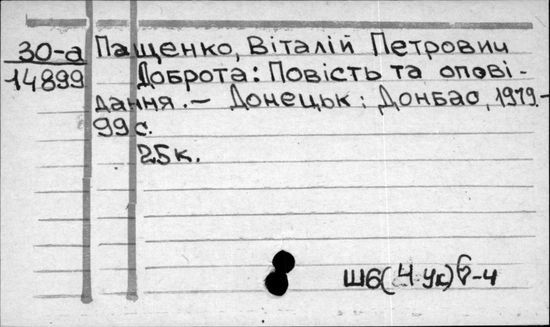 30-а Пащенко, Віталій Петрович
14899 Доброта: Повість та опові-
дання.— Донецьк: Донбас, 1979.-
99 с.
25к.
Ш6(4 Ук)6-4